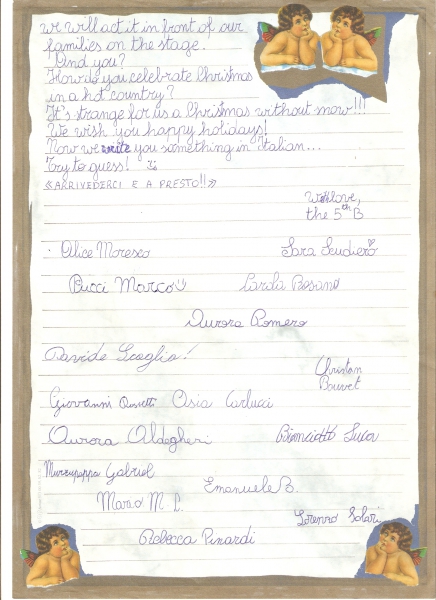 we will act it in front of our
families on the stage.
And you?
How do you celebrate Christmas
in a hot country?
It's strange for us a Christmas without snow!!!
We wish you happy holidays!
Now we write you something in Italian...
Try to guess!
«ARRIVEDERCI E A PRESTO!!»
With love,
the 5th B
Alice Moresco
Sara Scudiero
Bucci Marco
Carola Rosano
Aurora Romero
Davide Scaglia!
Christian
Bouvet
Giovanni Asia Carlucci
Aurora Aldegheri
Gabriel
Emanuele B.
Marco M
Lorenzo Solari
Rebecca Pinardi